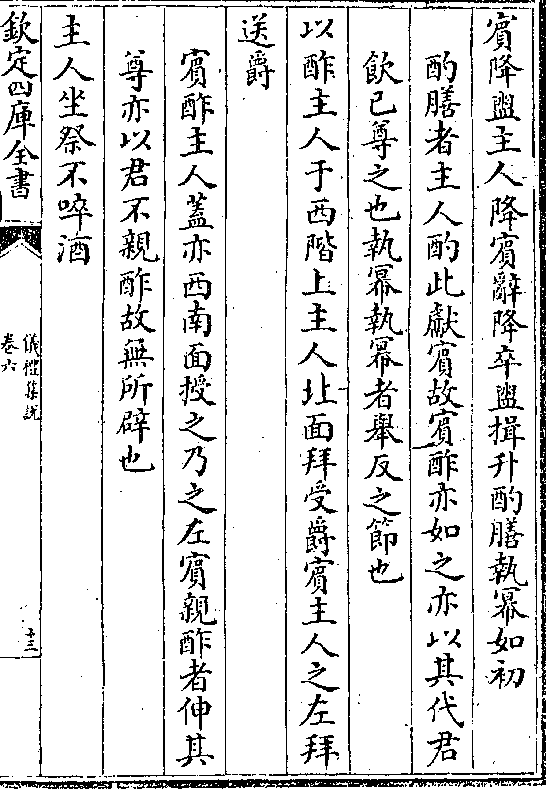 賓降盥主人降賓辭降卒盥揖升酌膳執冪如初
酌膳者主人酌此獻賓故賓酢亦如之亦以其代君
飲己尊之也執冪執冪者舉反之節也
以酢主人于西階上主人北面拜受爵賓主人之左拜
送爵
賓酢主人蓋亦西南面授之乃之左賓親酢者伸其
尊亦以君不親酢故無所辟也
主人坐祭不啐酒
欽定四庫全書
儀禮集說
卷六
十三